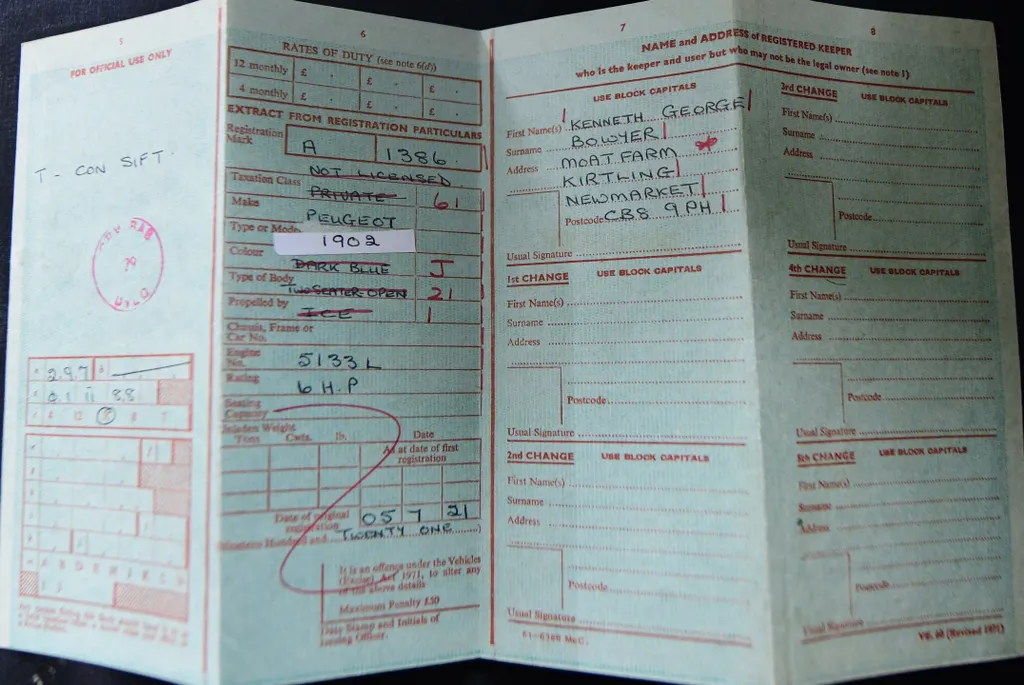 5
FOR OFFICIAL USE ONLY
T - CON SIFT.
79
2.9.7
0.1 11 88
6
RATES OF DUTY (see note 6(d))
12 monthly £ . £ . £ .
4 monthly £ . £ . £ .
EXTRACT FROM REGISTRATION PARTICULARS
Registration Mark A 1386
NOT LICENSED
Taxation Class PRIVATE 61
Make PEUGEOT
Type or Model 1902
Colour DARK BLUE J
Type of Body TWO SEATER-OPEN 21
Propelled by ICE 1
Chassis, Frame or
Car No.
Engine No. 5133L
Rating 6 H.P
Seating
Capacity
Unladen Weight
Tons Cwts. lb. Date
As at date of first
registration
Date of original
registration 05 7 21
Nineteen Hundred and TWENTY ONE
It is an offence under the Vehicles
(Excise) Act 1971, to alter any
of the above details
Maximum Penalty £50
Date Stamp and Initials of
Issuing Officer.
7
NAME and ADDRESS of REGISTERED KEEPER
who is the keeper and user but who may not be the legal owner (see note 1)
USE BLOCK CAPITALS
First Name(s) KENNETH GEORGE
Surname BOWYER
Address MOAT FARM
KIRTLING
NEWMARKET
Postcode CB8 9PH
Usual Signature
1st CHANGE USE BLOCK CAPITALS
First Name(s)
Surname
Address
Postcode
Usual Signature
2nd CHANGE USE BLOCK CAPITALS
First Name(s)
Surname
Address
Postcode
Usual Signature
51-6760 McC.
8
3rd CHANGE USE BLOCK CAPITALS
First Name(s)
Surname
Address
Postcode
Usual Signature
4th CHANGE USE BLOCK CAPITALS
First Name(s)
Surname
Address
Postcode
Usual Signature
5th CHANGE USE BLOCK CAPITALS
First Name(s)
Surname
Address
Postcode
Usual Signature
VE. 60 (Revised 1971)